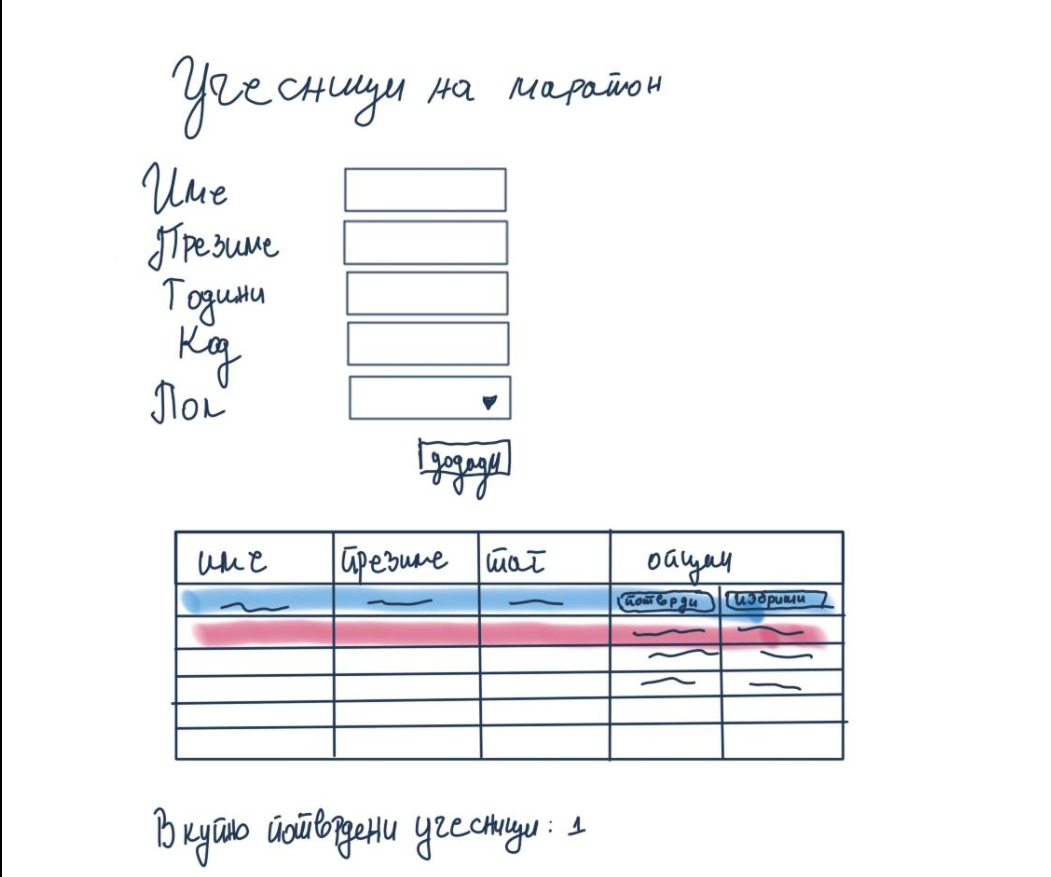 Учесници на маратон
Име
Презиме
Години
Код
Пол
додади
име презиме опции
потврди избриши
Вкупно потврдени учесници: 1